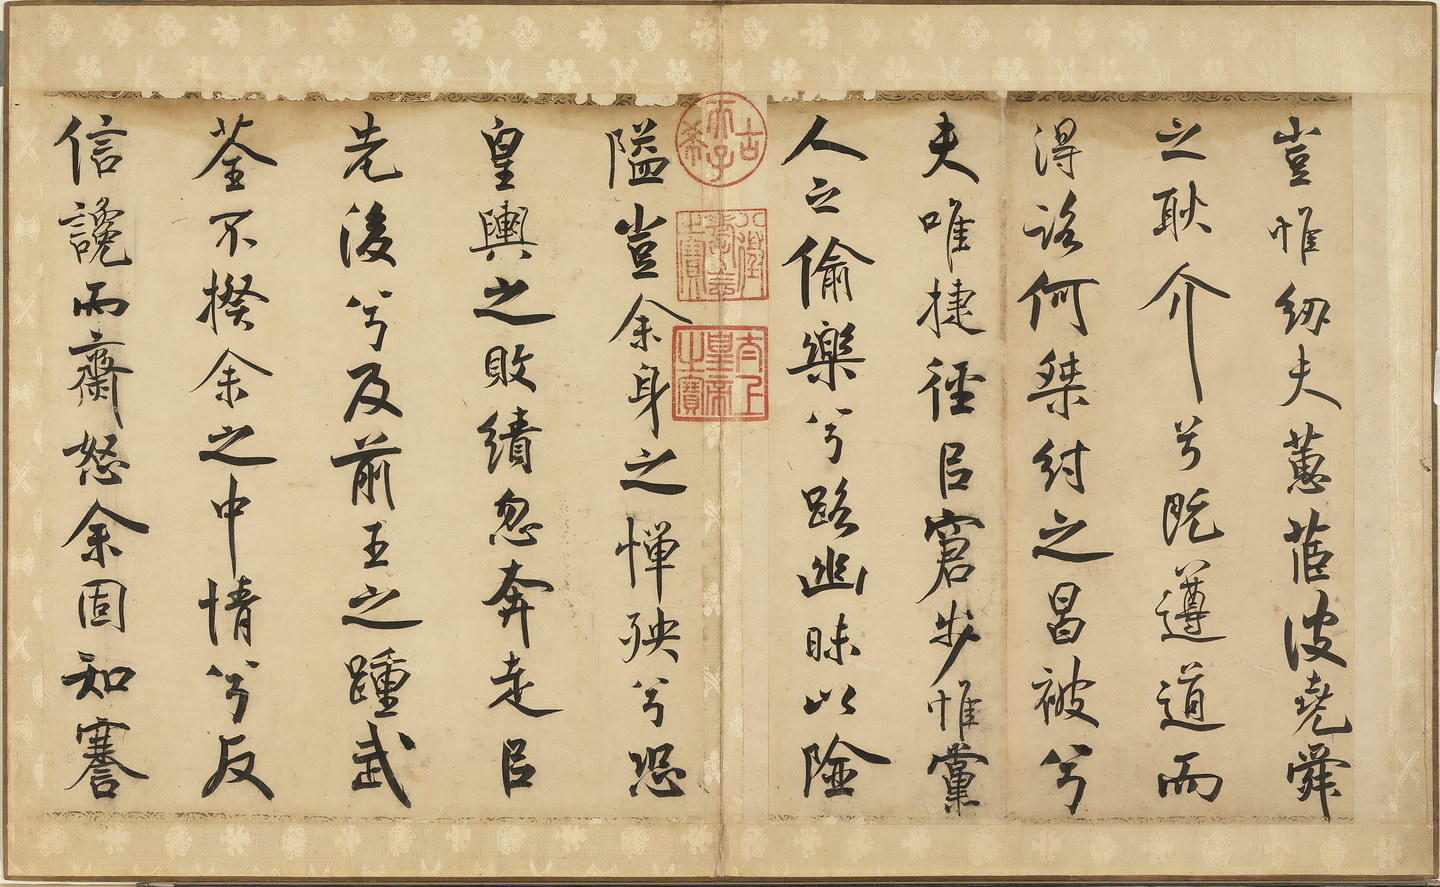 豈惟紉夫蕙茝彼堯舜
之耿介兮既遵道而
得路何桀紂之昌被兮
夫唯捷徑㠯窘步惟黨
人之偷樂兮路幽昧以險
隘豈余身之憚殃兮恐
皇輿之敗績忽奔走㠯
先後兮及前王之踵武
荃不揆余之中情兮反
信讒而齌怒余固知謇
古希天子
八徵耄念之寶
太上皇帝之寶